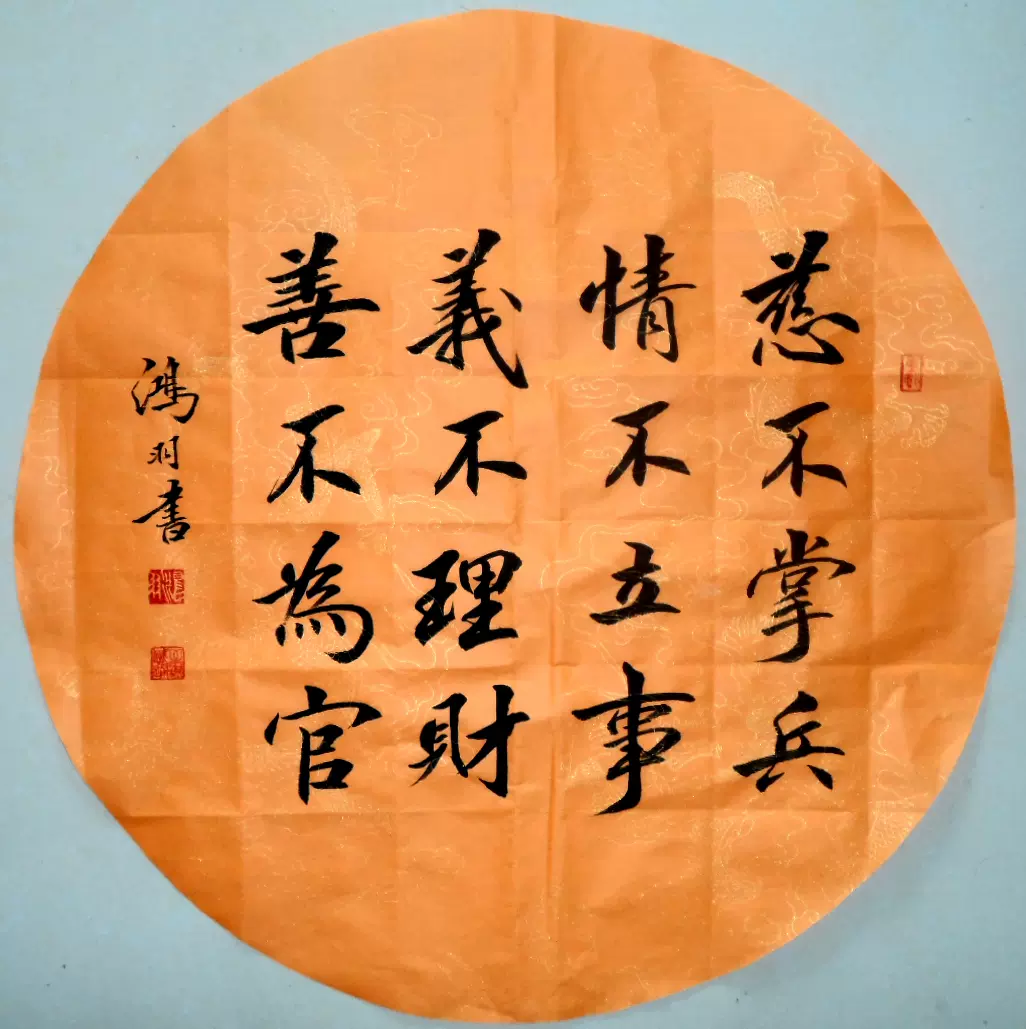 慈不掌兵
情不立事
義不理財
善不為官
鴻羽書